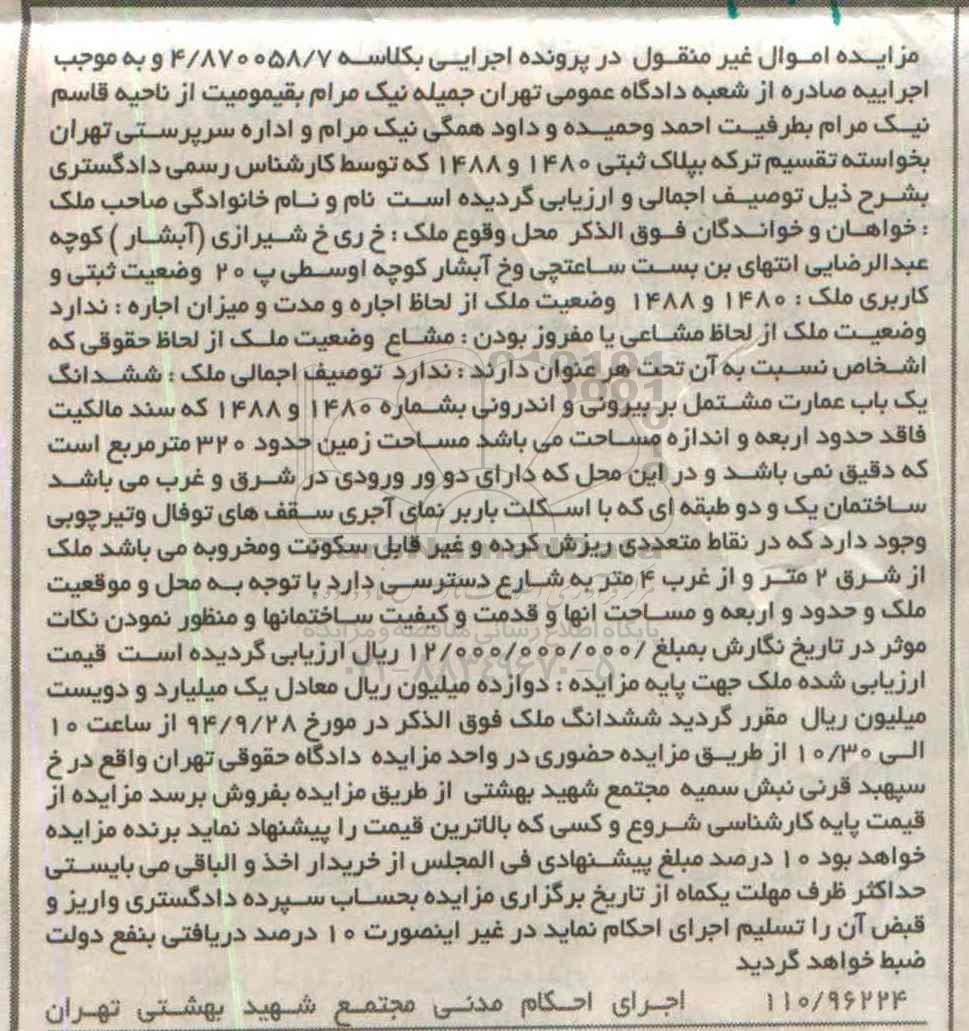 مزایده اموال غیر منقول در پرونده اجرایی بکلاسه ۴/۸۷۰۰۵۸/۷ و به موجب
اجراییه صادره از شعبه دادگاه عمومی تهران جمیله نیک مرام بقیمومیت از ناحیه قاسم
نیک مرام بطرفیت احمد وحمیده و داود همگی نیک مرام و اداره سرپرستی تهران
بخواسته تقسیم ترکه بپلاک ثبتی ۱۴۸۰ و ۱۴۸۸ که توسط کارشناس رسمی دادگستری
بشرح ذیل توصیف اجمالی و ارزیابی گردیده است نام و نام خانوادگی صاحب ملک
: خواهان و خواندگان فوق الذکر محل وقوع ملک : خ ری خ شیرازی (آبشار ) کوچه
عبدالرضایی انتهای بن بست ساعتچی وخ آبشار کوچه اوسطی پ ۲۰ وضعیت ثبتی و
کاربری ملک : ۱۴۸۰ و ۱۴۸۸ وضعیت ملک از لحاظ اجاره و مدت و میزان اجاره : ندارد
وضعیت ملک از لحاظ مشاعی یا مفروز بودن : مشاع وضعیت ملک از لحاظ حقوقی که
اشخاص نسبت به آن تحت هر عنوان دارند : ندارد توصیف اجمالی ملک : ششدانگ
یک باب عمارت مشتمل بر بیرونی و اندرونی بشماره ۱۴۸۰ و ۱۴۸۸ که سند مالکیت
فاقد حدود اربعه و اندازه مساحت می باشد مساحت زمین حدود ۳۲۰ مترمربع است
که دقیق نمی باشد و در این محل که دارای دو ور ورودی در شرق و غرب می باشد
ساختمان یک و دو طبقه ای که با اسکلت باربر نمای آجری سقف های توفال وتیرچوبی
وجود دارد که در نقاط متعددی ریزش کرده و غیر قابل سکونت ومخروبه می باشد ملک
از شرق ۲ متر و از غرب ۴ متر به شارع دسترسی دارد با توجه به محل و موقعیت
ملک و حدود و اربعه و مساحت انها و قدمت و کیفیت ساختمانها و منظور نمودن نکات
موثر در تاریخ نگارش بمبلغ /۱۲/۰۰۰/۰۰۰/۰۰۰ ریال ارزیابی گردیده است قیمت
ارزیابی شده ملک جهت پایه مزایده : دوازده میلیون ریال معادل یک میلیارد و دویست
میلیون ریال مقرر گردید ششدانگ ملک فوق الذکر در مورخ ۹۴/۹/۲۸ از ساعت ۱۰
الی ۱۰/۳۰ از طریق مزایده حضوری در واحد مزایده دادگاه حقوقی تهران واقع در خ
سپهبد قرنی نبش سمیه مجتمع شهید بهشتی از طریق مزایده بفروش برسد مزایده از
قیمت پایه کارشناسی شروع و کسی که بالاترین قیمت را پیشنهاد نماید برنده مزایده
خواهد بود ۱۰ درصد مبلغ پیشنهادی فی المجلس از خریدار اخذ و الباقی می بایستی
حداکثر ظرف مهلت یکماه از تاریخ برگزاری مزایده بحساب سپرده دادگستری واریز و
قبض آن را تسلیم اجرای احکام نماید در غیر اینصورت ۱۰ درصد دریافتی بنفع دولت
ضبط خواهد گردید
۱۱۰/۹۶۲۲۴ اجرای احکام مدنی مجتمع شهید بهشتی تهران
پایگاه اطلاع رسانی مناقصه و مزایده
۰۲۱-۸۸۳۴۹۶۷۰-۵